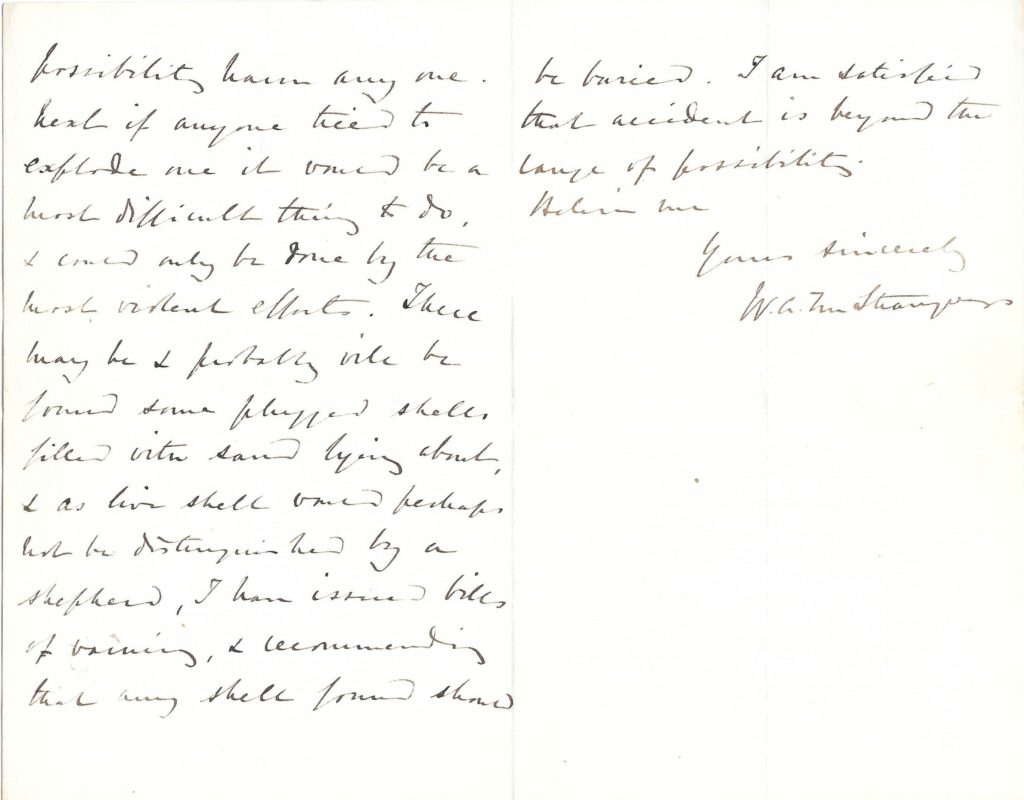 possibility harm any one.
Next if anyone tried to
explode one it would be a
most difficult thing to do,
& could only be done by the
most violent efforts. There
may be & probably will be
found some plugged shells
filled with sand lying about,
& as live shell would perhaps
not be distinguished by a
shepherd, I have issued bills
of warning, & recommending
that any shell found should
be buried. I am satisfied
that accident is beyond the
range of possibility.
Believe me
Yours sincerely
W. A. Fox Strangways